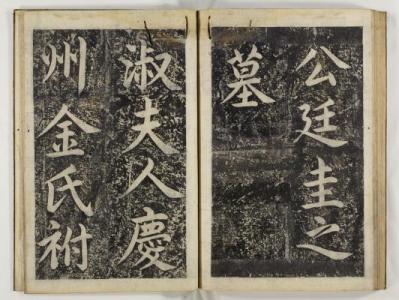 公廷圭之
墓
淑夫人慶
州金氏祔